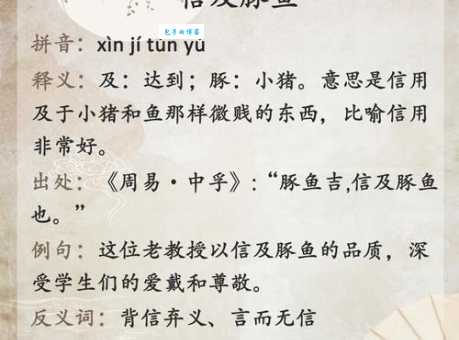 信及豚鱼
拼音：xìn jí tún yú
释义：及：达到；豚：小猪。意思是信用
及于小猪和鱼那样微贱的东西，比喻信用
非常好。
出处：《周易·中孚》:“豚鱼吉,信及豚鱼
也。”
例句：这位老教授以信及豚鱼的品质，深
受学生们的爱戴和尊敬。
反义词：背信弃义、言而无信